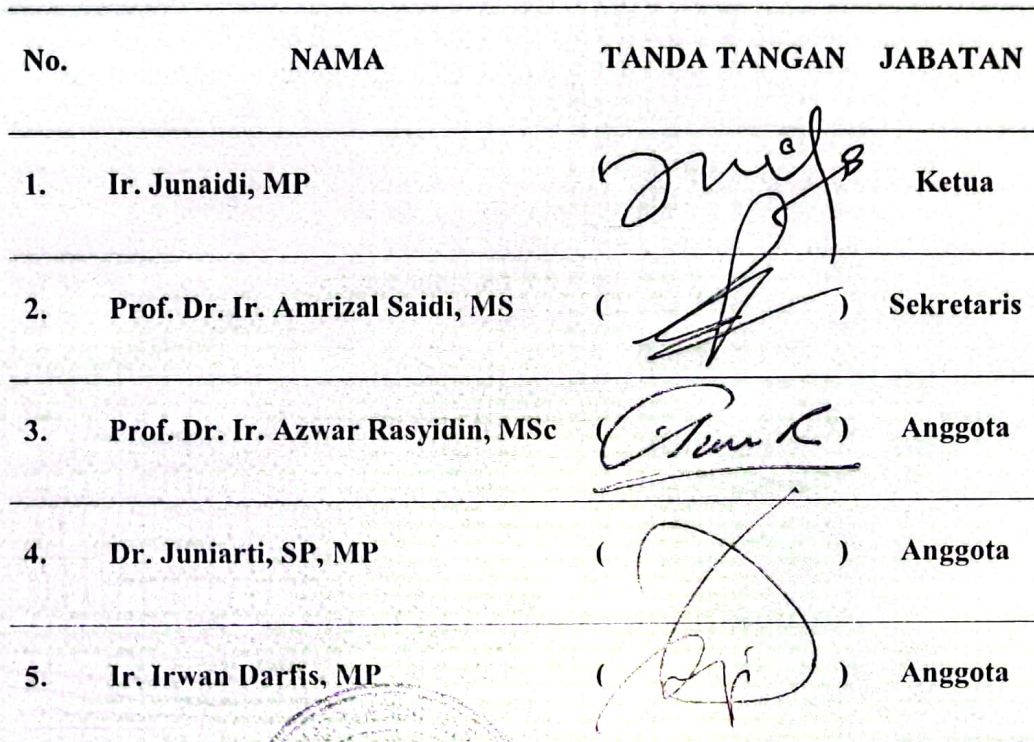 No. NAMA TANDA TANGAN JABATAN
1. Ir. Junaidi, MP Ketua
2. Prof. Dr. Ir. Amrizal Saidi, MS ( ) Sekretaris
3. Prof. Dr. Ir. Azwar Rasyidin, MSc ( ) Anggota
4. Dr. Juniarti, SP, MP ( ) Anggota
5. Ir. Irwan Darfis, MP ( ) Anggota